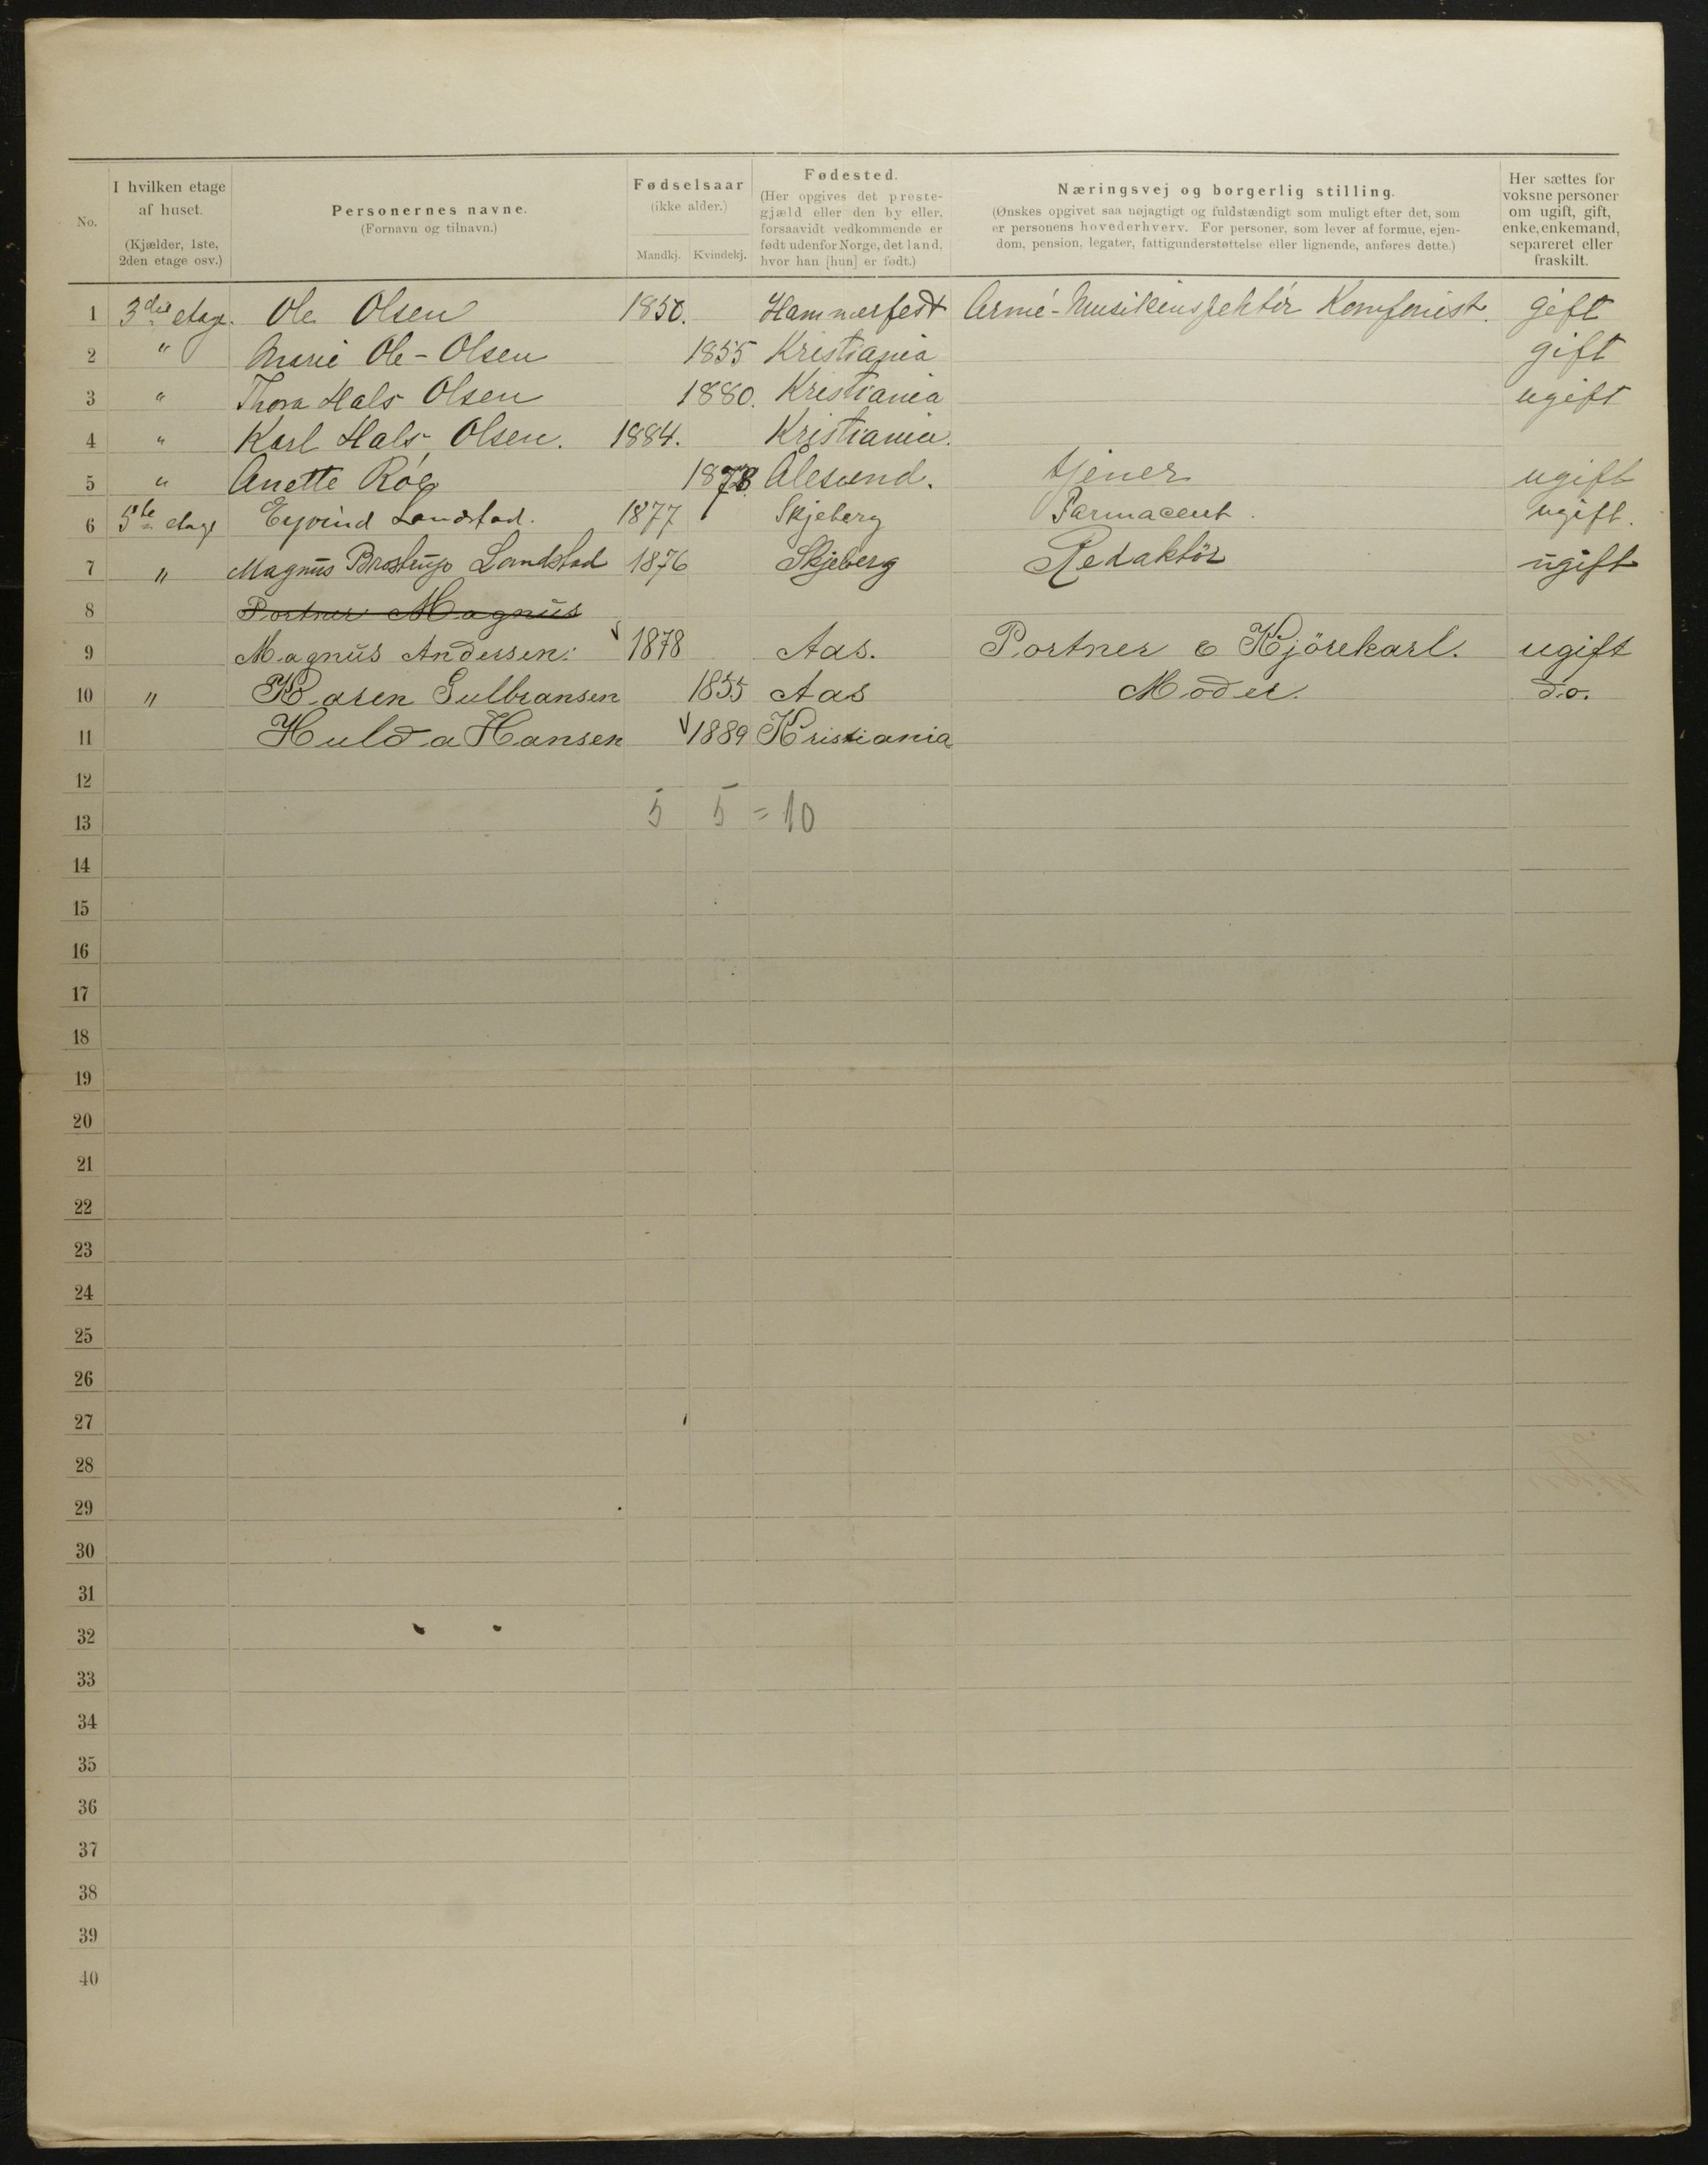 No.	I hvilken etage af huset. (Kjælder, 1ste, 2den etage osv.)	Personernes navne. (Fornavn og tilnavn.)	Fødselsaar (ikke alder.) Mandkj. Kvindekj.	Fødested. (Her opgives det præstegjæld eller den by eller, forsaavidt vedkommende er født udenfor Norge, det land, hvor han [hun] er født.)	Næringsvej og borgerlig stilling. (Ønskes opgivet saa nøjagtigt og fuldstændigt som muligt efter det, som er personens hovederhverv. For personer, som lever af formue, ejendom, pension, legater, fattigunderstøttelse eller lignende, anføres dette.)	Her sættes for voksne personer om ugift, gift, enke, enkemand, separeret eller fraskilt.
1 3die etage. Ole Olsen 1850. Hammerfest Armé-Musikinspektör Komponist. gift
2 " Marie Ole-Olsen 1855 Kristiania gift
3 " Thora Hals Olsen 1880. Kristiania ugift
4 " Karl Hals Olsen. 1884. Kristiania.
5 " Anette Röe 1878. Ålesund. tjener ugift
6 5te etage Eyvind Landstad. 1877 Skjeberg Farmaceut. ugift.
7 " Magnus Brostrup Landstad 1876 Skjeberg Redaktör ugift
8 Portner Magnus
9 Magnus Andersen. 1878 Aas. Portner & Kjörekarl. ugift
10 " Karen Gulbransen 1855 Aas Moder. do.
11 Hulda Hansen 1889 Kristiania
12
13 5 5 = 10
14
15
16
17
18
19
20
21
22
23
24
25
26
27
28
29
30
31
32
33
34
35
36
37
38
39
40